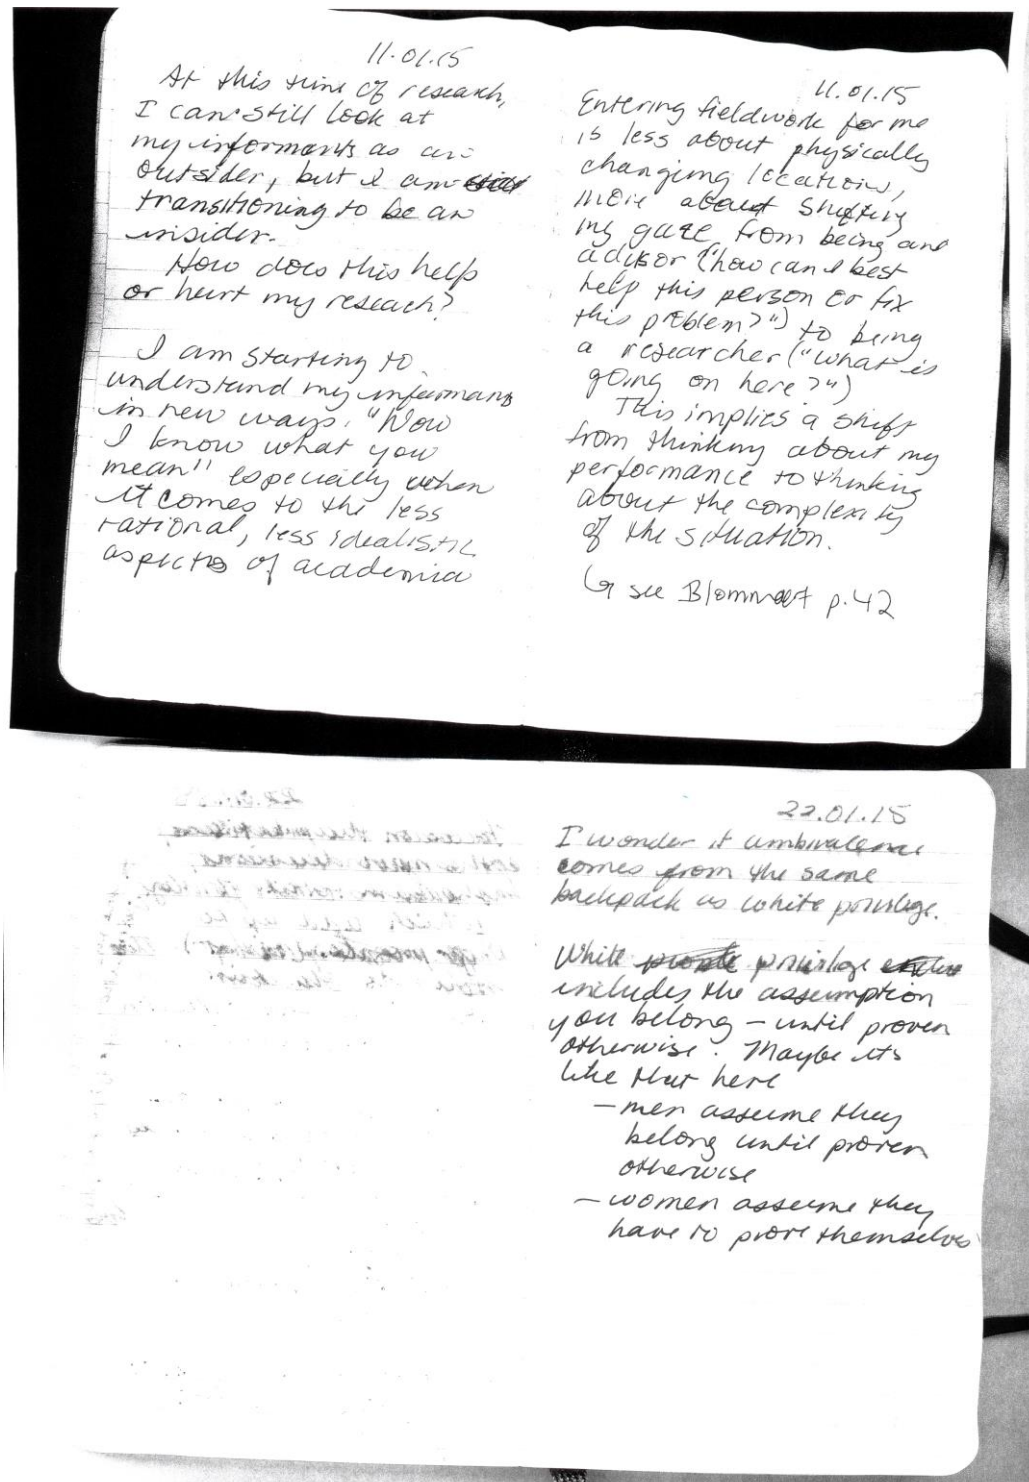 11.01.15
At this time of research,
I can still look at
my informants as an
outsider, but I am still
transitioning to be an
insider.
How does this help
or hurt my reseach?
I am starting to
understand my informans
in new ways. "Now
I know what you
mean" especially when
it comes to the less
rational, less idealistic
aspects of academia
11.01.15
Entering fieldwork for me
is less about physically
changing locations,
more about shifting
my gaze from being and
advisor ("how can I best
help this person or fix
this problem?") to being
a researcher ("what is
going on here?")
This implies a shift
from thinking about my
performance to thinking
about the complexity
of the situation.
↳ see Blommaert p.42
22.01.15
I wonder if ambivalence
comes from the same
backpack as white privilege.
White privilege
includes the assumption
you belong – until proven
otherwise. Maybe its
like that here
– men assume they
belong until proven
otherwise
– women assume they
have to prove themselves